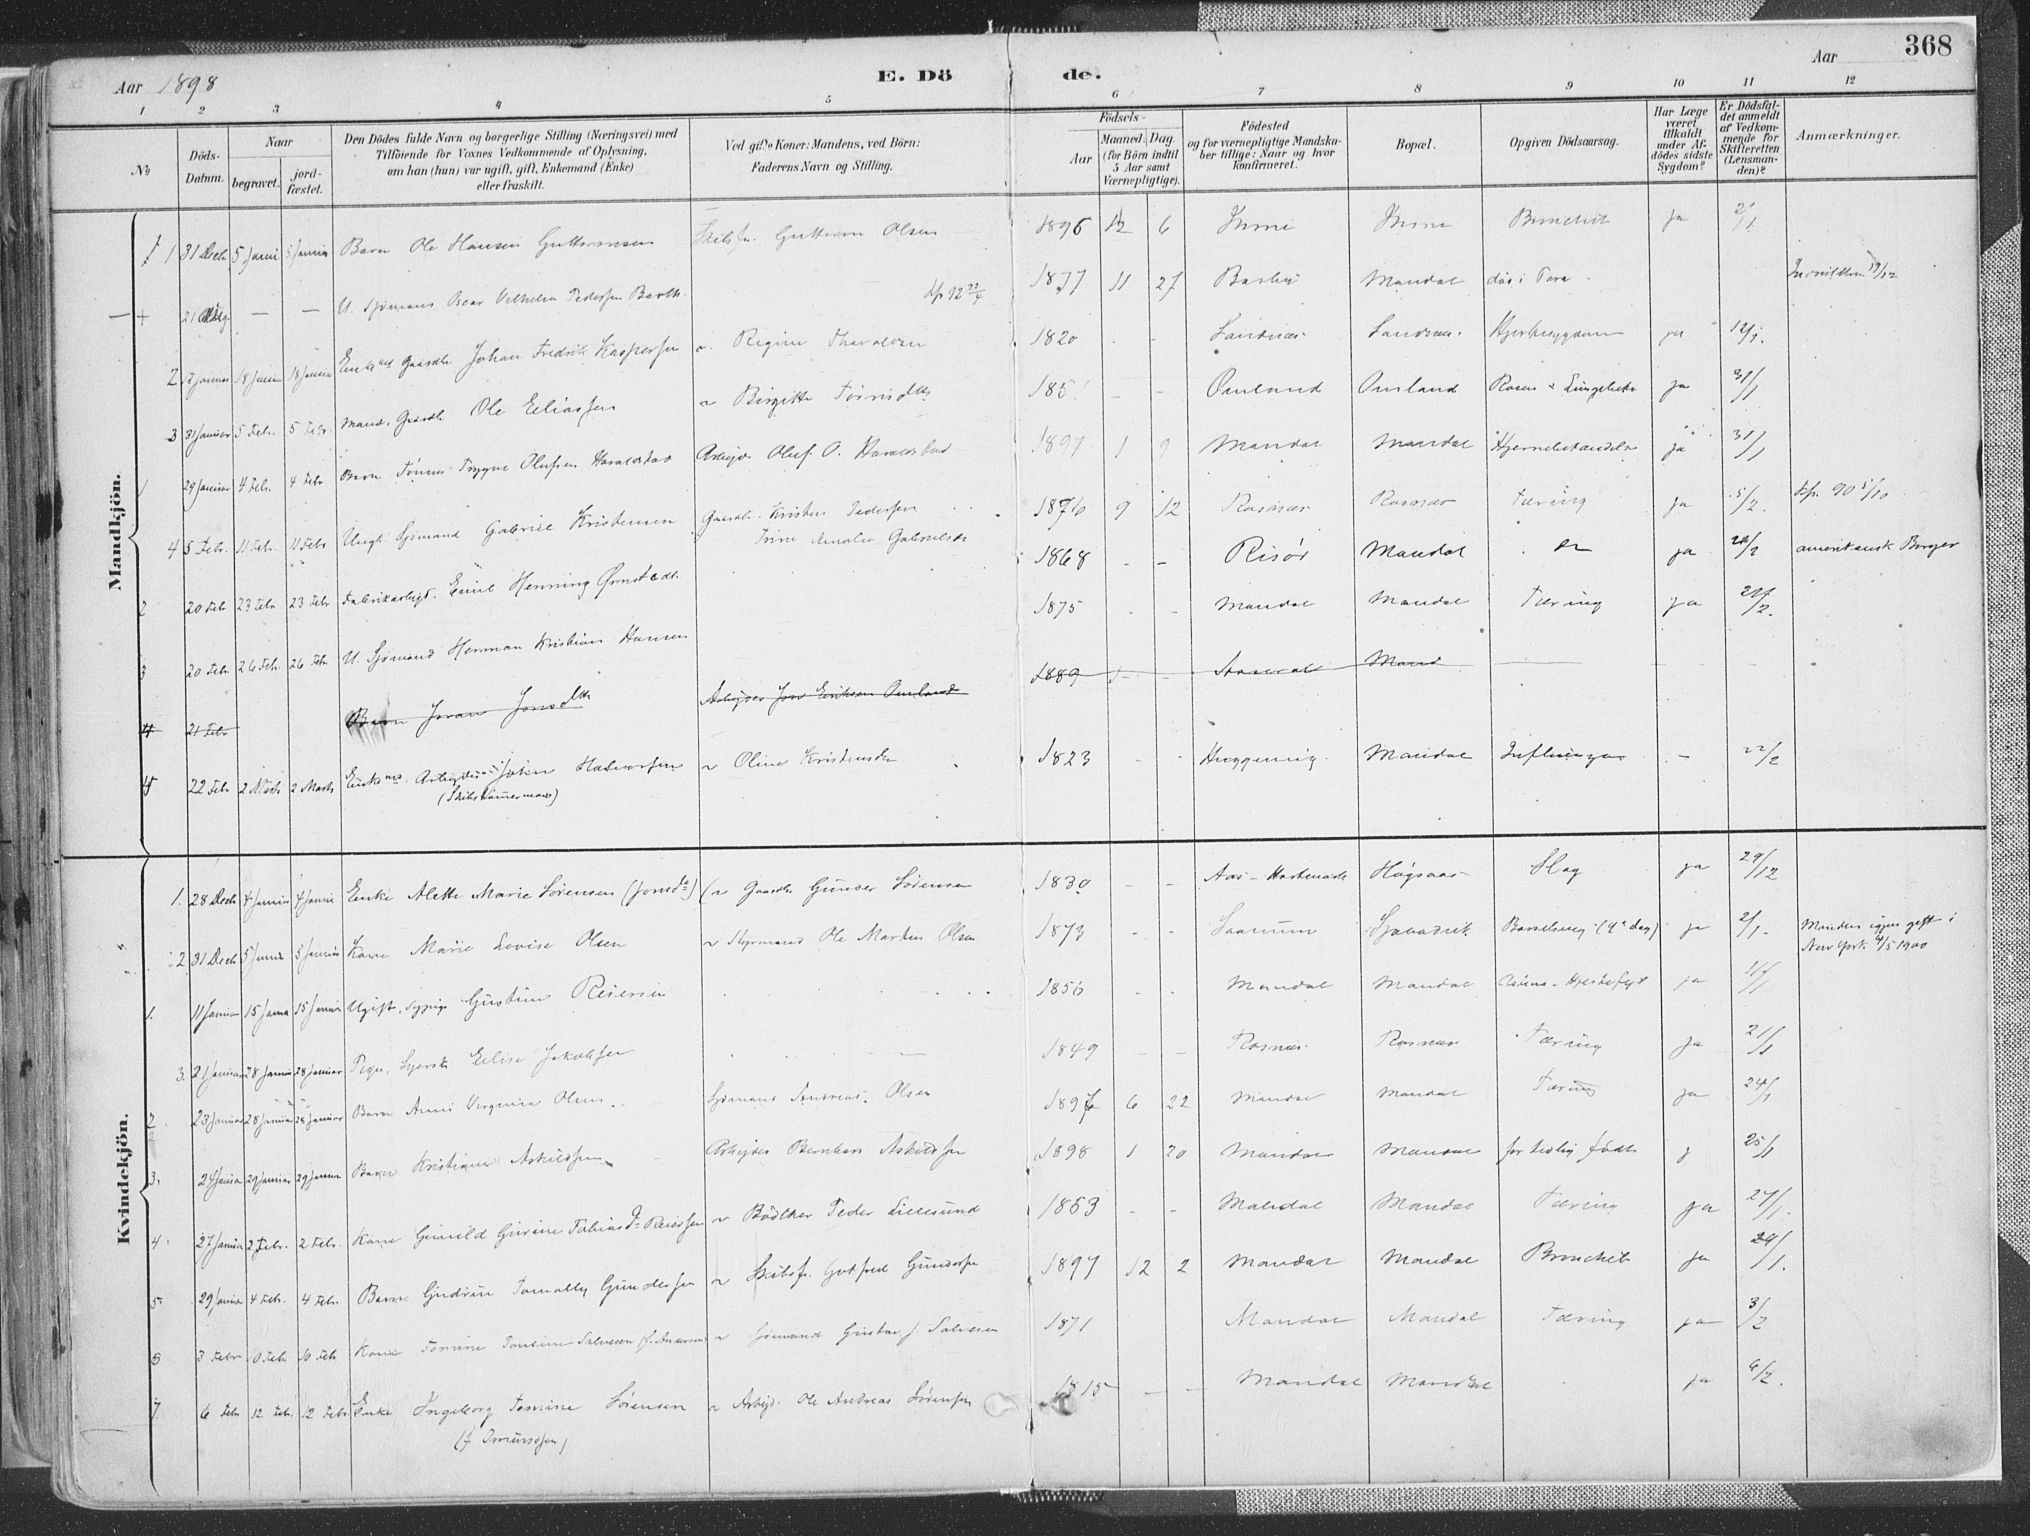 368
Aar 1898
E. Dö de.
Aar
1 2 3 4 5 6 7 8 9 10 11 12
No
Döds-Datum.
Naar
begravet.
jord-fæstet.
Den Dödes fulde Navn og borgerlige Stilling (Næringsvei) med
Tilföiende for Voxnes Vedkommende af Oplysning,
om han (hun) var ugift, gift, Enkemand (Enke)
eller fraskilt.
Ved gifte Koner: Mandens, ved Börn:
Faderens Navn og Stilling.
Födsels-
Aar
Maaned. Dag.
(for Börn indtil
5 Aar samt
Værnepligtige).
Födested
og for værnepligtige Mandska-
ber tillige: Naar og hvor
konfirmeret.
Bopæl.
Opgiven Dödsaarsag.
Har Læge
været
tilkaldt
under Af-
dödes sidste
Sygdom?
Er Dödsfal-
det anmeldt
af Vedkom-
mende for
Skifteretten
(Lensman-
den)?
Anmærkninger.
Mandkjön.
1 31 Dech 5 Januar 5 Januar Barn Ole Hansen Guttormsen Skibsfr. Guttorm Olsen 1896 12 6 Ime Ime Bronchit ja 2/1
21 — — U. Sjömand Oscar Vilhelm Pedersen Barth 1877 11 27 Barbu Mandal
2 18 Januar 18 Januar Enkemd Gaardbr Johan Fredrik Kaspersen ~ Regine 1820 - - Sandnæs Sandnæs Hjertesygdom ja 12/1.
3 31 Januar 5 Febr. 5 Febr. Mand. Gaardbr Ole Eeliassen ~ Birgitte Tönnisdtr 185 — — Omland Omland Rosen ja 31/1
1 29 Januar 4 Febr. 4 Febr Barn Tönnes Trygve Olufsen Haraldstad Arbejd. Oluf O. Haraldstad 1897 1 9 Mandal Mandal Hjernebetændelse ja 31/1
4 5 Febr. 11 Febr. 11 Febr Ungk. Sjömand Gabriel Kristensen Gaardbr. Kristen Pedersen 1876 9 12 Rosnæs Rosnæs Tæring ja 5/2. kfr. 90 5/10
Trine Amalie Gabrielsdr
2 20 Febr 23 Febr 23 Febr Fabrikarbejd. Emil Henning Ørnstedt. 1868 - - Risör Mandal ja 20/2 amerikansk Borger
3 20 Febr 26 Febr. 26 Febr U. Sjömand Herman Kristian Hansen 1875 - - Mandal Mandal Tæring ja 21/2.
4 21 Febr Barn Joran Jonsdtr Arbejder Jon Eriksen Omland 1889 Aaseral Mand
4 22 Febr 2 Marts 2 Marts Enkemd. Arbejder Halvorsen ~ Oline Kristensdr 1823 - - Mandal Influenza — 22/2
(Skibstömmermand)
Kvindekjön.
1. 28 Dech 4 Januar 4 Januar Enke Alette Marie Sörensen (Jonsdtr) (~ Gaardbr. Gunder Sörensen 1830 - - Aas - Harkmark Högsaas Slag ja 29/12
2 31 Dech 5 Januar 5 Januar Kone Marie Lovise Olsen ~ Styrmand Ole Martin Olsen 1873 - - Saanum Barselseng (9e dag) ja 2/1. Manden igjen gift i
New York 4/5 1900
1. 11 Januar 15 Januar 15 Januar Ugift. Gustine Reiersen 1856 - - Mandal Mandal Hjertefejl ja 11/1
3. 21 Januar 28 Januar 28 Januar Pige. Elise Jakobsen 1849 - - Rosnæs Rosnæs Tæring ja 21/1
2. 23 Januar 28 Januar 28 Januar Barn Anne Virginia Olsen Sjömand Andreas Olsen 1897 6 22 Mandal Mandal Tæring ja 24/1
3. 24 Januar 29 Januar 29 Januar Barn Kristiane Askildsen Arbejder Bernhard Askildsen 1898 1 20 Mandal Mandal for tidlig födt j 25/1
4. 27 Januar 2 Febr. 2 Febr. Kone Gunild Gurine Tobiasdr Reiersen ~ Bödker Peder Lillesund 1853 - - Mandal Mandal Tæring ja 27/1.
5. 29 Januar 4 Febr. 4 Febr. Barn Gudrun Gundersen ~ Skibsfr. Gotfred Gundersen 1897 12 2 Mandal Mandal Bronchit ja 29/1.
6 3 Febr 10 Febr. 10 Febr Kone Tomine Salvesen (f. Andersen) ~ Sömand Gustav J. Salvesen 1871 Mandal Mandal Tæring ja 3/2
7. 6 Febr 12 Febr. 12 Febr Enke Ingeborg Tomine Sörensen ~ Arbejd. Ole Andreas Sörensen 1815 - - Mandal Mandal ja 6/2.